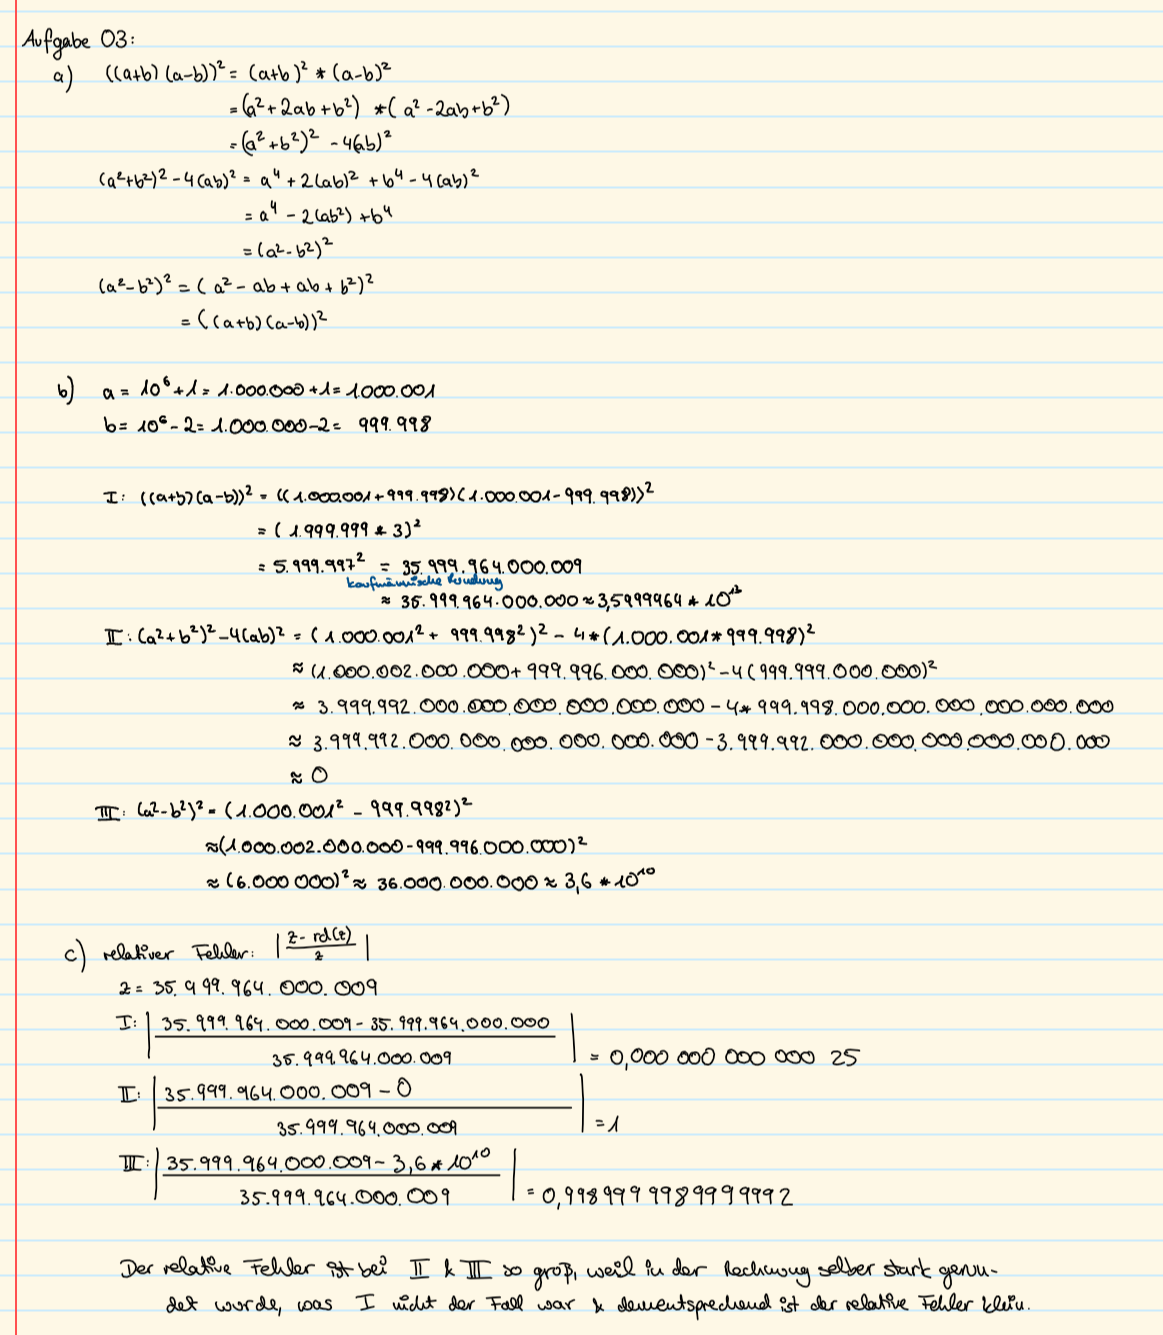 Aufgabe 03:
a) ((a+b)(a-b))² = (a+b)² * (a-b)²
= (a² + 2ab + b²) * (a² - 2ab + b²)
= (a² + b²)² - 4(ab)²
(a²+b²)² - 4(ab)² = a⁴ + 2(ab)² + b⁴ - 4(ab)²
= a⁴ - 2(ab²) + b⁴
= (a² - b²)²
(a² - b²)² = (a² - ab + ab + b²)²
= ((a+b)(a-b))²
b) a = 10⁶ + 1 = 1.000.000 + 1 = 1.000.001
b = 10⁶ - 2 = 1.000.000 - 2 = 999.998
I: ((a+b)(a-b))² = ((1.000.001 + 999.998)(1.000.001 - 999.998))²
= (1.999.999 * 3)²
= 5.999.997² = 35.999.964.000.009
kaufmännische Rundung
≈ 35.999.964.000.000 ≈ 3,5999964 * 10¹³
II: (a² + b²)² - 4(ab)² = (1.000.001² + 999.998²)² - 4*(1.000.001*999.998)²
≈ (1.000.002.000.000 + 999.996.000.000)² - 4(999.999.000.000)²
≈ 3.999.992.000.000.000.000.000.000 - 4* 999.998.000.000.000.000.000.000
≈ 3.999.992.000.000.000.000.000.000 - 3.999.992.000.000.000.000.000.000
≈ 0
III: (a² - b²)² = (1.000.001² - 999.998²)²
≈ (1.000.002.000.000 - 999.996.000.000)²
≈ (6.000 000)² ≈ 36.000.000.000 ≈ 3,6 * 10¹⁰
c) relativer Fehler: | (z - rd(z)) / z |
z = 35.999.964.000.009
I: | (35.999.964.000.009 - 35.999.964.000.000) / 35.999.964.000.009 | = 0,000 000 000 000 25
II: | (35.999.964.000.009 - 0) / 35.999.964.000.009 | = 1
III: | (35.999.964.000.009 - 3,6 * 10¹⁰) / 35.999.964.000.009 | = 0,9989999989999992
Der relative Fehler ist bei II & III so groß, weil in der Rechnung selber stark gerun-
det wurde, was I nicht der Fall war & dementsprechend ist der relative Fehler klein.